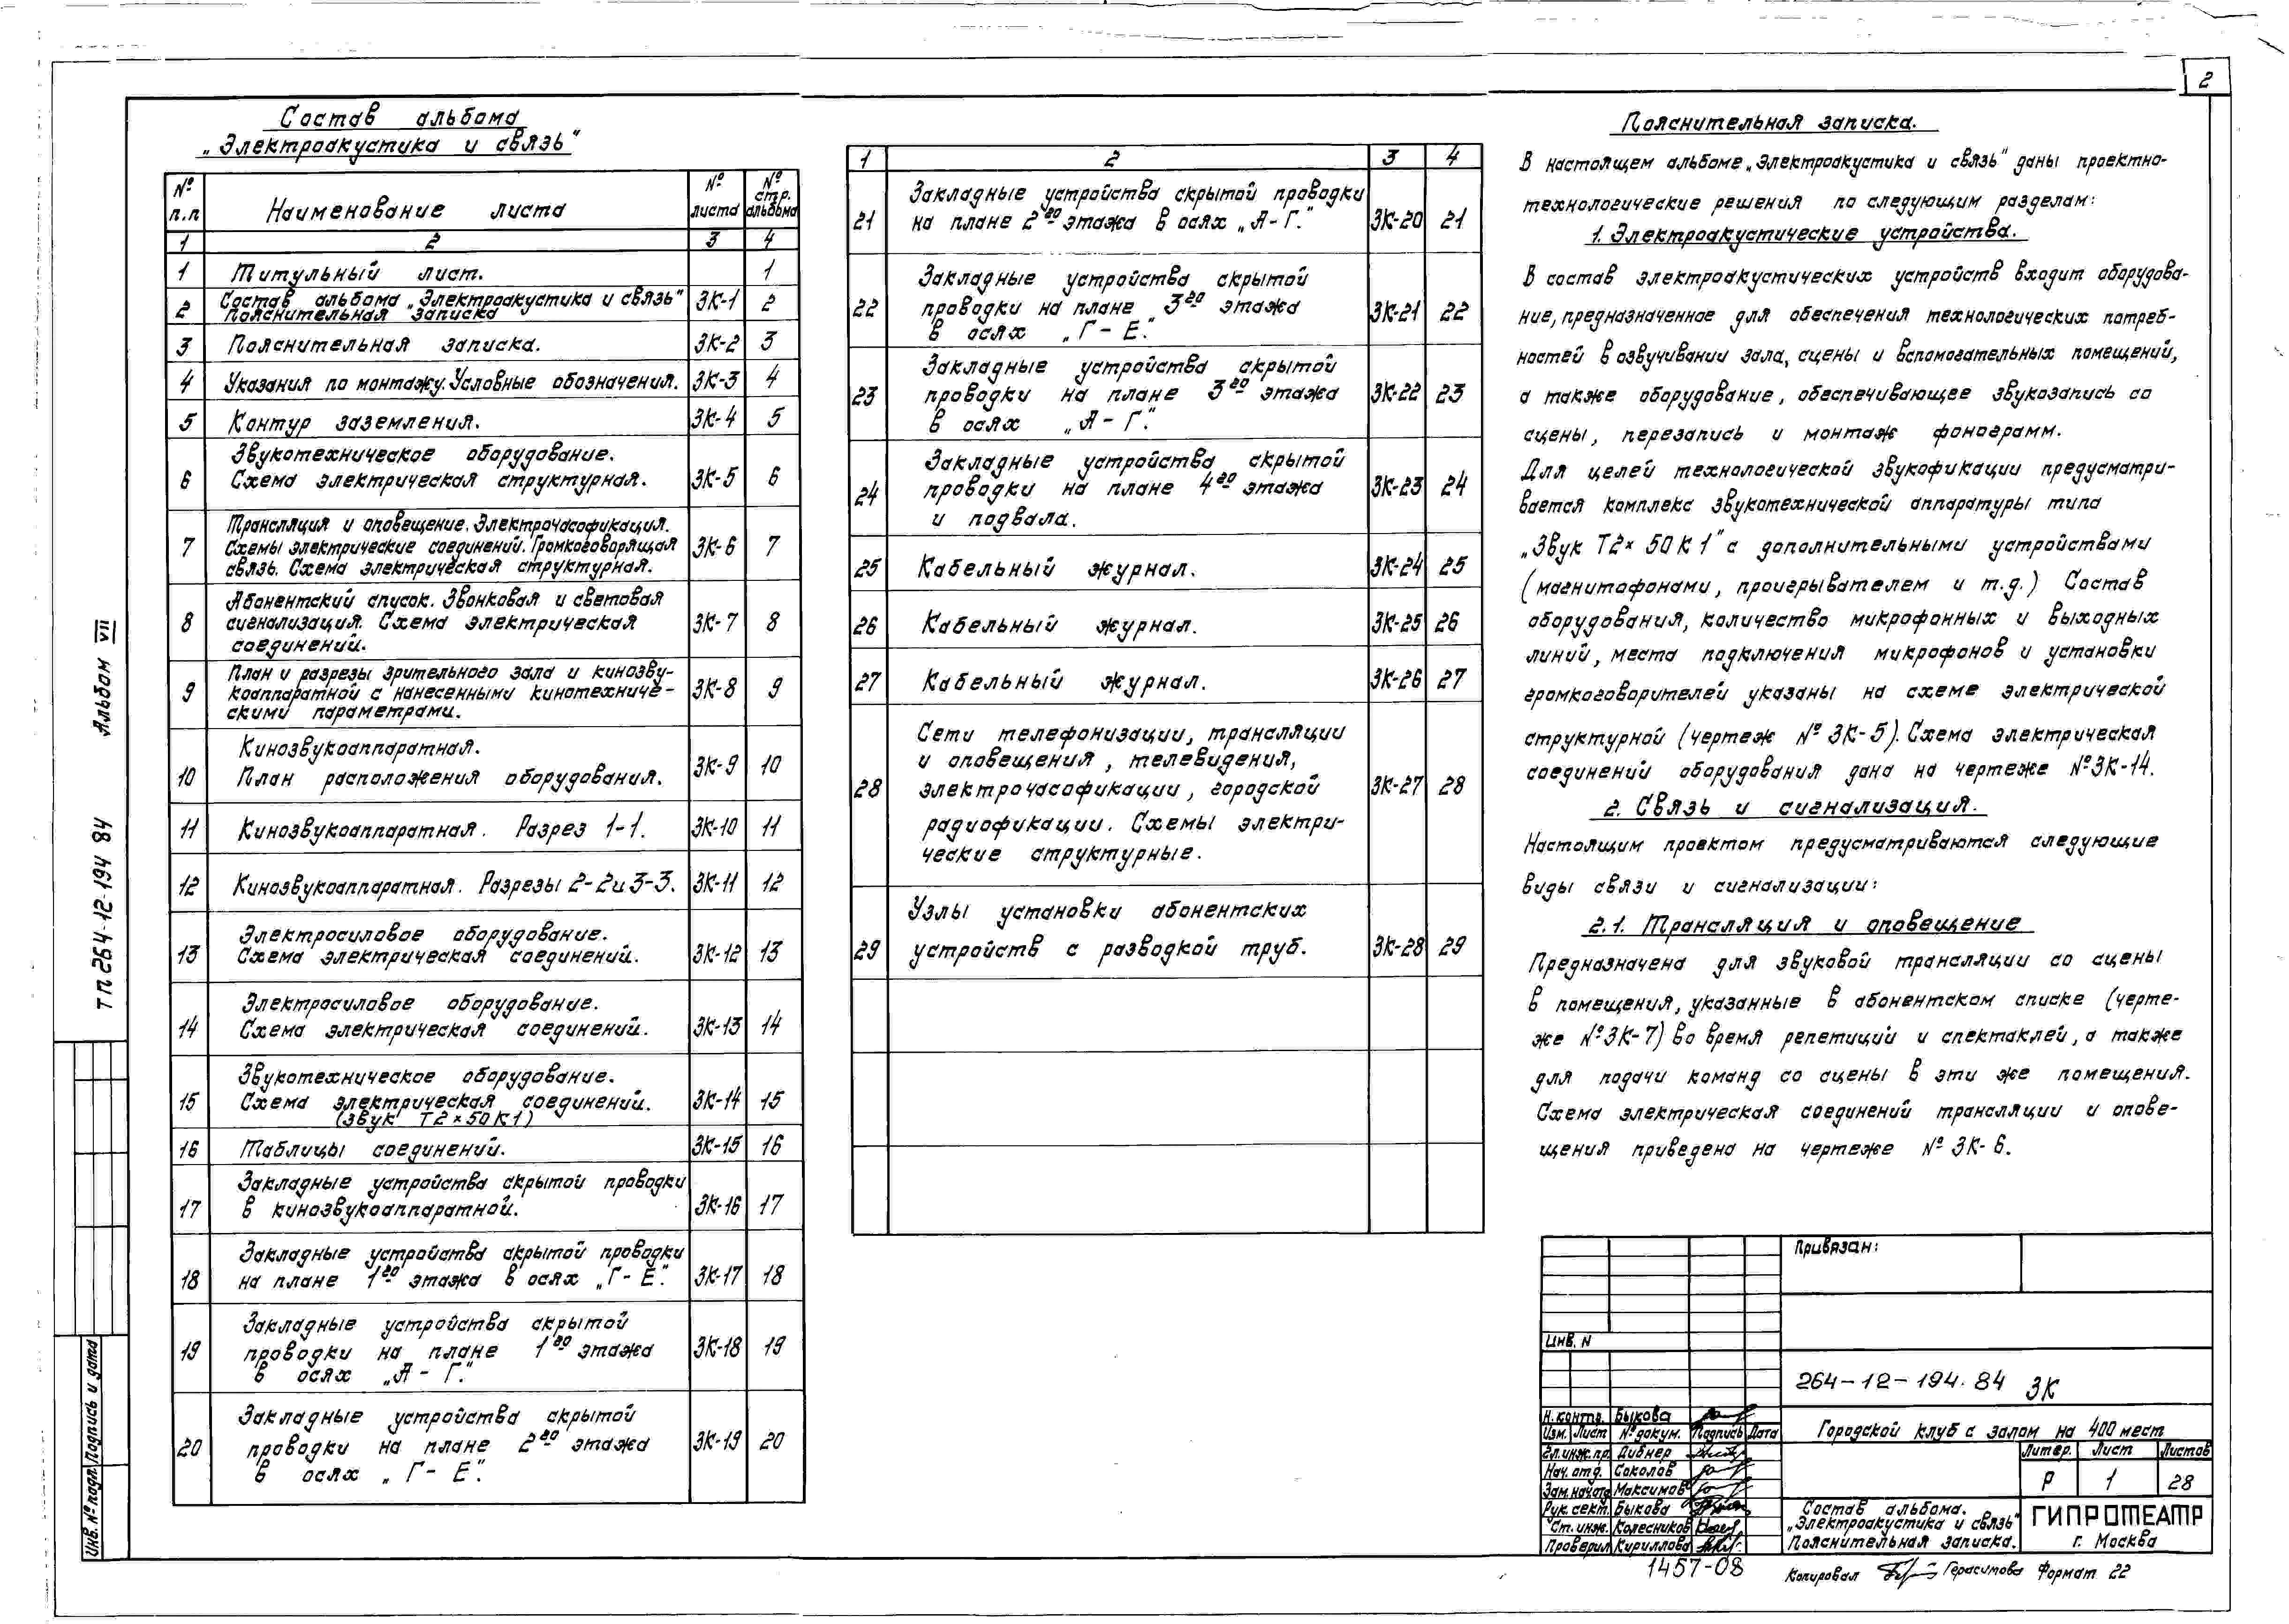 2
Состав альбома
„Электроакустика и связь"
№ п.п
Наименование листа
№ листа
№ стр. альбома
1 2 3 4
1 Титульный лист. 1
2 Состав альбома „Электроакустика и связь" ЭК-1 2
Пояснительная записка
3 Пояснительная записка. ЭК-2 3
4 Указания по монтажу. Условные обозначения. ЭК-3 4
5 Контур заземления. ЭК-4 5
Звукотехническое оборудование.
6 Схема электрическая структурная. ЭК-5 6
Трансляция и оповещение. Электрочасофикация.
7 Схемы электрические соединений. Громкоговорящая ЭК-6 7
связь. Схема электрическая структурная.
Абонентский список. Звонковая и световая
8 сигнализация. Схема электрическая ЭК-7 8
соединений.
План и разрезы зрительного зала и кинозву-
9 коаппаратной с нанесенными кинотехниче- ЭК-8 9
скими параметрами.
Кинозвукоаппаратная.
10 План расположения оборудования. ЭК-9 10
11 Кинозвукоаппаратная. Разрез 1-1. ЭК-10 11
12 Кинозвукоаппаратная. Разрезы 2-2 и 3-3. ЭК-11 12
Электросиловое оборудование.
13 Схема электрическая соединений. ЭК-12 13
Электросиловое оборудование.
14 Схема электрическая соединений. ЭК-13 14
Звукотехническое оборудование.
15 Схема электрическая соединений. ЭК-14 15
(Звук Т2×50К1)
16 Таблицы соединений. ЭК-15 16
Закладные устройства скрытой проводки
17 в кинозвукоаппаратной. ЭК-16 17
Закладные устройства скрытой проводки
18 на плане 1го этажа в осях „Г-Е". ЭК-17 18
Закладные устройства скрытой
19 проводки на плане 1го этажа ЭК-18 19
в осях „А-Г."
Закладные устройства скрытой
20 проводки на плане 2го этажа ЭК-19 20
в осях „Г-Е".
1 2 3 4
Закладные устройства скрытой проводки
21 на плане 2го этажа в осях „А-Г." ЭК-20 21
Закладные устройства скрытой
22 проводки на плане 3го этажа ЭК-21 22
в осях „Г-Е."
Закладные устройства скрытой
23 проводки на плане 3го этажа ЭК-22 23
в осях „А-Г."
Закладные устройства скрытой
24 проводки на плане 4го этажа ЭК-23 24
и подвала.
25 Кабельный журнал. ЭК-24 25
26 Кабельный журнал. ЭК-25 26
27 Кабельный журнал. ЭК-26 27
Сети телефонизации, трансляции
и оповещения, телевидения,
28 электрочасофикации, городской ЭК-27 28
радиофикации. Схемы электри-
ческие структурные.
Узлы установки абонентских
29 устройств с разводкой труб. ЭК-28 29
Пояснительная записка.
В настоящем альбоме „Электроакустика и связь" даны проектно-
технологические решения по следующим разделам:
1. Электроакустические устройства.
В состав электроакустических устройств входит оборудова-
ние, предназначенное для обеспечения технологических потреб-
ностей в озвучивании зала, сцены и вспомогательных помещений,
а также оборудование, обеспечивающее звукозапись со
сцены, перезапись и монтаж фонограмм.
Для целей технологической звукофикации предусматри-
вается комплекс звукотехнической аппаратуры типа
„Звук Т2×50К1" с дополнительными устройствами
(магнитофонами, проигрывателем и т.д.) Состав
оборудования, количество микрофонных и выходных
линий, места подключения микрофонов и установки
громкоговорителей указаны на схеме электрической
структурной (чертеж № ЭК-5). Схема электрическая
соединений оборудования дана на чертеже №ЭК-14.
2. Связь и сигнализация.
Настоящим проектом предусматриваются следующие
виды связи и сигнализации:
2.1. Трансляция и оповещение
Предназначена для звуковой трансляции со сцены
в помещения, указанные в абонентском списке (черте-
же №ЭК-7) во время репетиций и спектаклей, а также
для подачи команд со сцены в эти же помещения.
Схема электрическая соединений трансляции и опове-
щения приведена на чертеже № ЭК-6.
Привязан:
Инв. N
264-12-194.84 ЭК
Н.контр. Быкова
Изм. Лист № докум. Подпись Дата
Гл.инж.пр. Дибнер
Нач. отд. Соколов
Зам.нач.отд Максимов
Рук. сект. Быкова
Ст. инж. Колесников
Проверил Кириллова
Городской клуб с залом на 400 мест
Литер. Лист Листов
Р 1 28
Состав альбома.
„Электроакустика и связь"
Пояснительная записка.
ГИПРОТЕАТР
г. Москва
1457-08
Копировал Герасимова Формат 22
Альбом VII
ТП 264-12-194 84
Инв. № подл. Подпись и дата